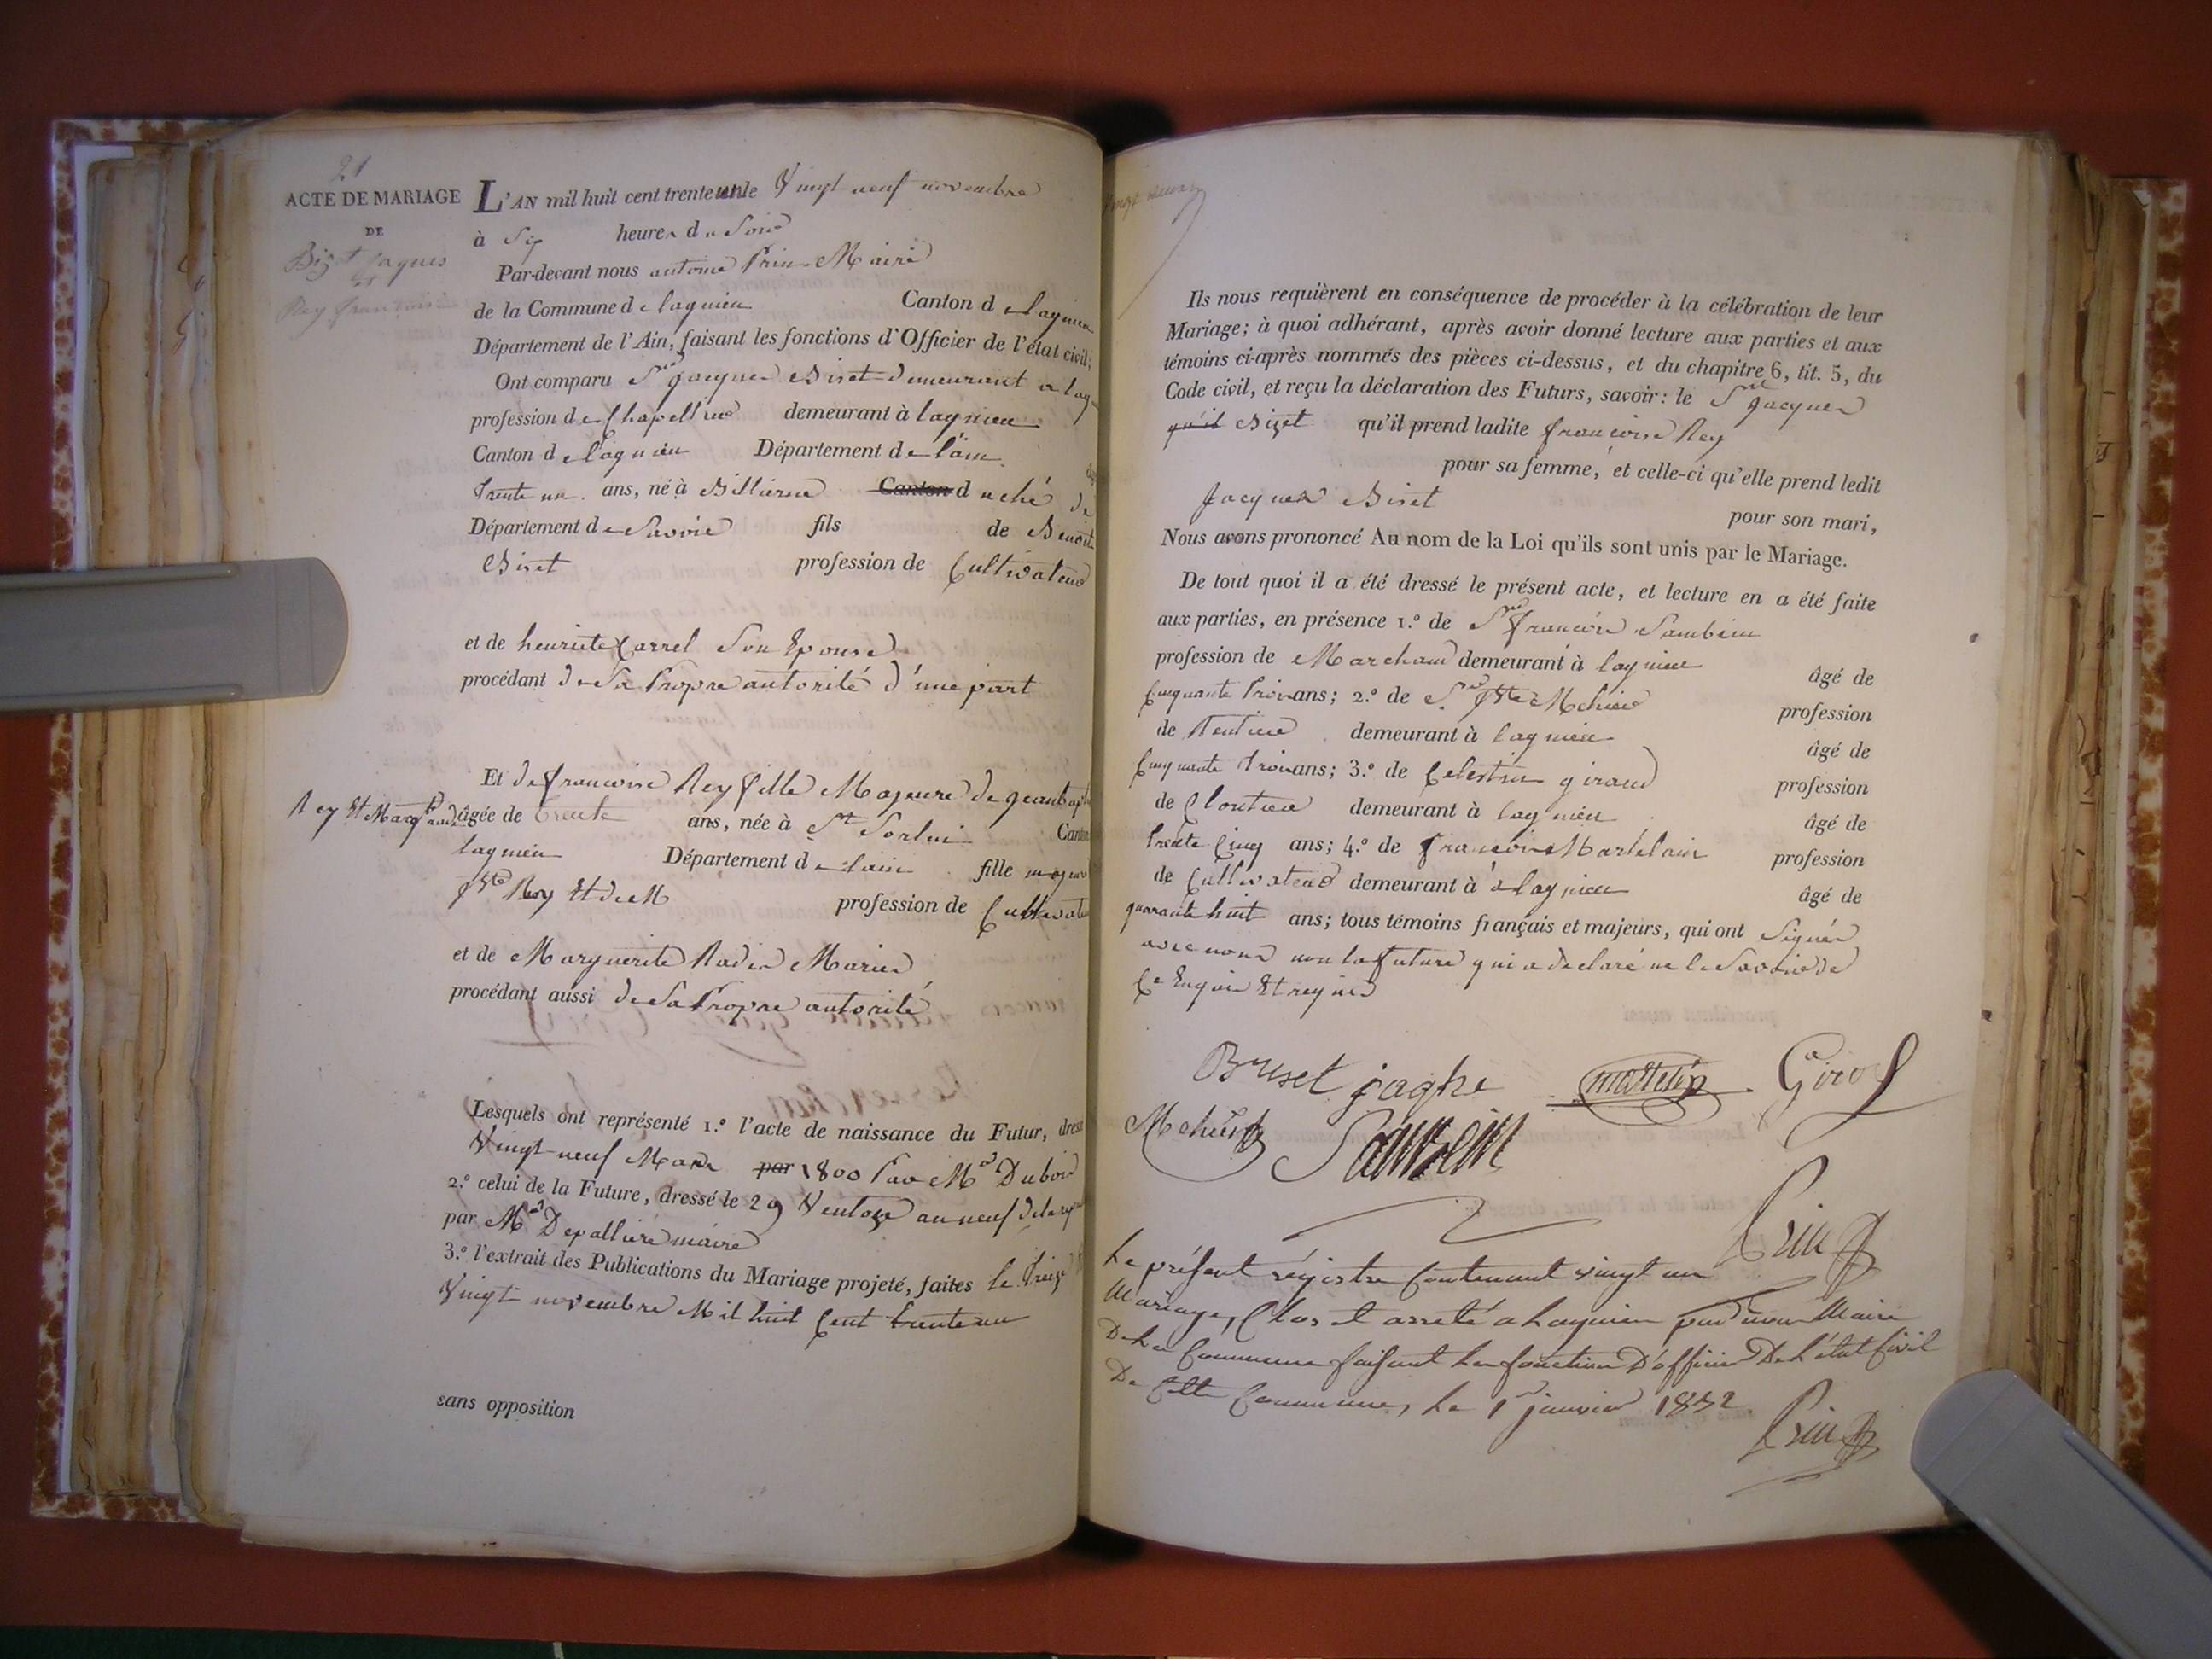 21
ACTE DE MARIAGE
DE
Bizet Jaques
Et
Rey francoise
L'AN mil huit cent trente un le Vingt neuf novembre
à Six heures du Soir
Par-devant nous antoine Prin Maire
de la Commune de lagnieu Canton de lagnieu
Département de l'Ain, faisant les fonctions d'Officier de l'état civil;
Ont comparu Sr jacques Biset demeurant a lag
profession de Chapellier demeurant à lagnieu
Canton de lagnieu Département de l'ain
trente un ans, né à Billieme Canton duché de
Département de Savoie fils de Benoit
Biset profession de Cultivateur
et de henriete Carrel Son Epouse
procédant de Sa Propre autorité d'une part
Et de francoise Rey fille Majeure de
Rey Et Marg
âgée de trente ans, née à St Sorlin Canton
lagnieu Département de lain fille majeure
jte Rey Et de M profession de Cultivate
et de Marguerite Nadin Mariés
procédant aussi de Sa Propre autorité
Lesquels ont représenté 1.º l'acte de naissance du Futur, dressé
Vingt neuf Mars par 1800 Par Mr Dubois
2.º celui de la Future, dressé le 29 Ventoze an neuf de la rep
par Mr Depalliere maire
3.º l'extrait des Publications du Mariage projeté, faites le treize
Vingt novembre Mil huit Cent trente un
sans opposition
Ils nous requièrent en conséquence de procéder à la célébration de leur
Mariage; à quoi adhérant, après avoir donné lecture aux parties et aux
témoins ci-après nommés des pièces ci-dessus, et du chapitre 6, tit. 5, du
Code civil, et reçu la déclaration des Futurs, savoir: le Sr jacques
qu'il Bizet qu'il prend ladite francoise Rey
pour sa femme, et celle-ci qu'elle prend ledit
jacques Biset pour son mari,
Nous avons prononcé Au nom de la Loi qu'ils sont unis par le Mariage.
De tout quoi il a été dressé le présent acte, et lecture en a été faite
aux parties, en présence 1.º de Sr francois Sambein
profession de Marchand demeurant à lagnieu âgé de
Cinquante trois ans; 2.º de Sr jte Mehier profession
de Rentier demeurant à lagnieu âgé de
Cinquante trois ans; 3.º de Celestin giraud profession
de Cloutier demeurant à lagnieu âgé de
trente Cinq ans; 4.º de francois Martelain profession
de Cultivateur demeurant à a lagnieu âgé de
quarante huit ans; tous témoins français et majeurs, qui ont Signés
avec nous non la future qui a declaré ne le Savoir de
Ce Enquis Et requis
Biset jaqhe martelin Giro
Mehier Sambein
Prin
Le présent régistre Contenant vingt un
Mariage, Clos et arreté a Lagnieu par nous Maire
De la Commune faisant les fonctions D'officier De L'état Civil
De Cette Commune, le 1er janvier 1832
Prin